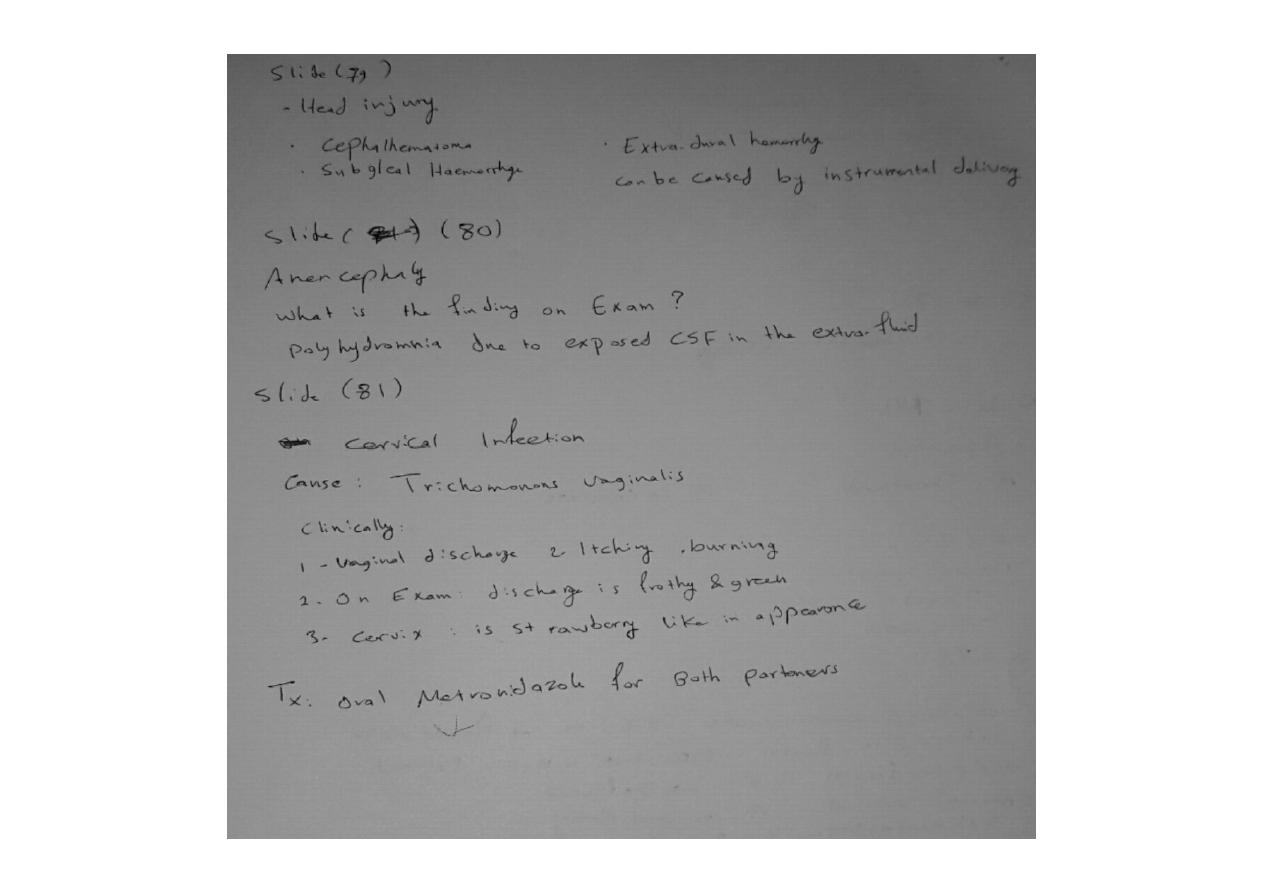 Slide (79)
- Head injury
· Cephalhematoma
· Subgleal Haemorrhge
· Extra.dural hemorrhg
can be caused by instrumental delivery
Slide ( ) (80)
Anencephaly
what is the finding on Exam ?
polyhydromnia due to exposed CSF in the extra.fluid
Slide (81)
Cervical Infection
Cause : Trichomonons vaginalis
Clinically:
1 - vaginal discharge & Itching , burning
2. On Exam: discharge is frothy & green
3- Cervix : is strawberry like in appearance
Tx: oral Metronidazole for Both partoners